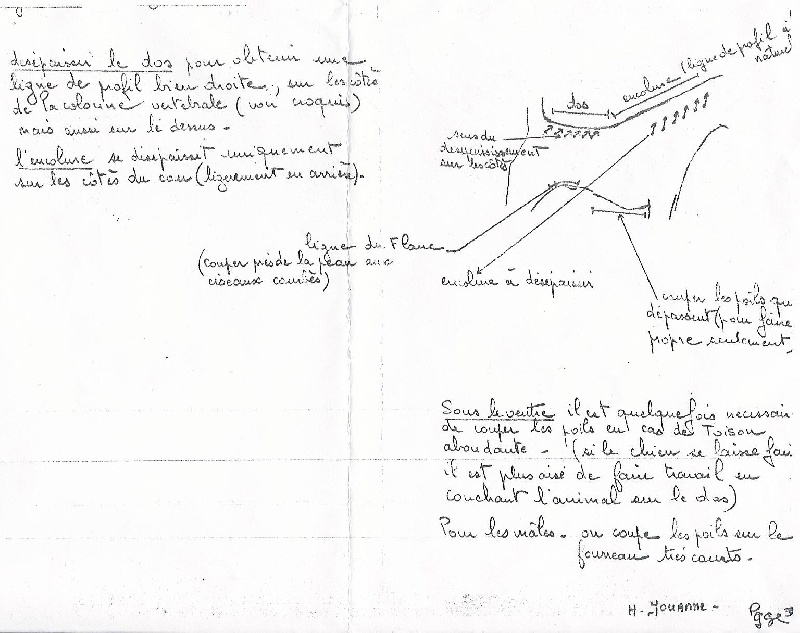 désépaissir le dos pour obtenir une
ligne de profil bien droite, sur les côtés
de la colonne vertébrale (voir croquis)
mais aussi sur le dessus.
l'encolure se désépaissit uniquement
sur les côtés du cou (légèrement en arrière).
dos
encolure (ligne de profil à
naturel
sens du
desépaississement
sur les côtés
ligne du Flanc
(couper près de la peau aux
ciseaux courbés)
encolure à désépaissir
couper les poils qui
dépassent (pour faire
propre seulement.
Sous le ventre il est quelquefois necessair
de couper les poils en cas de Toison
abondante - (si le chien se laisse fair
il est plus aisé de faire travail en
couchant l'animal sur le dos)
Pour les mâles. on coupe les poils sur le
fourreau très courts.
H. JOUANNE -
Page 3